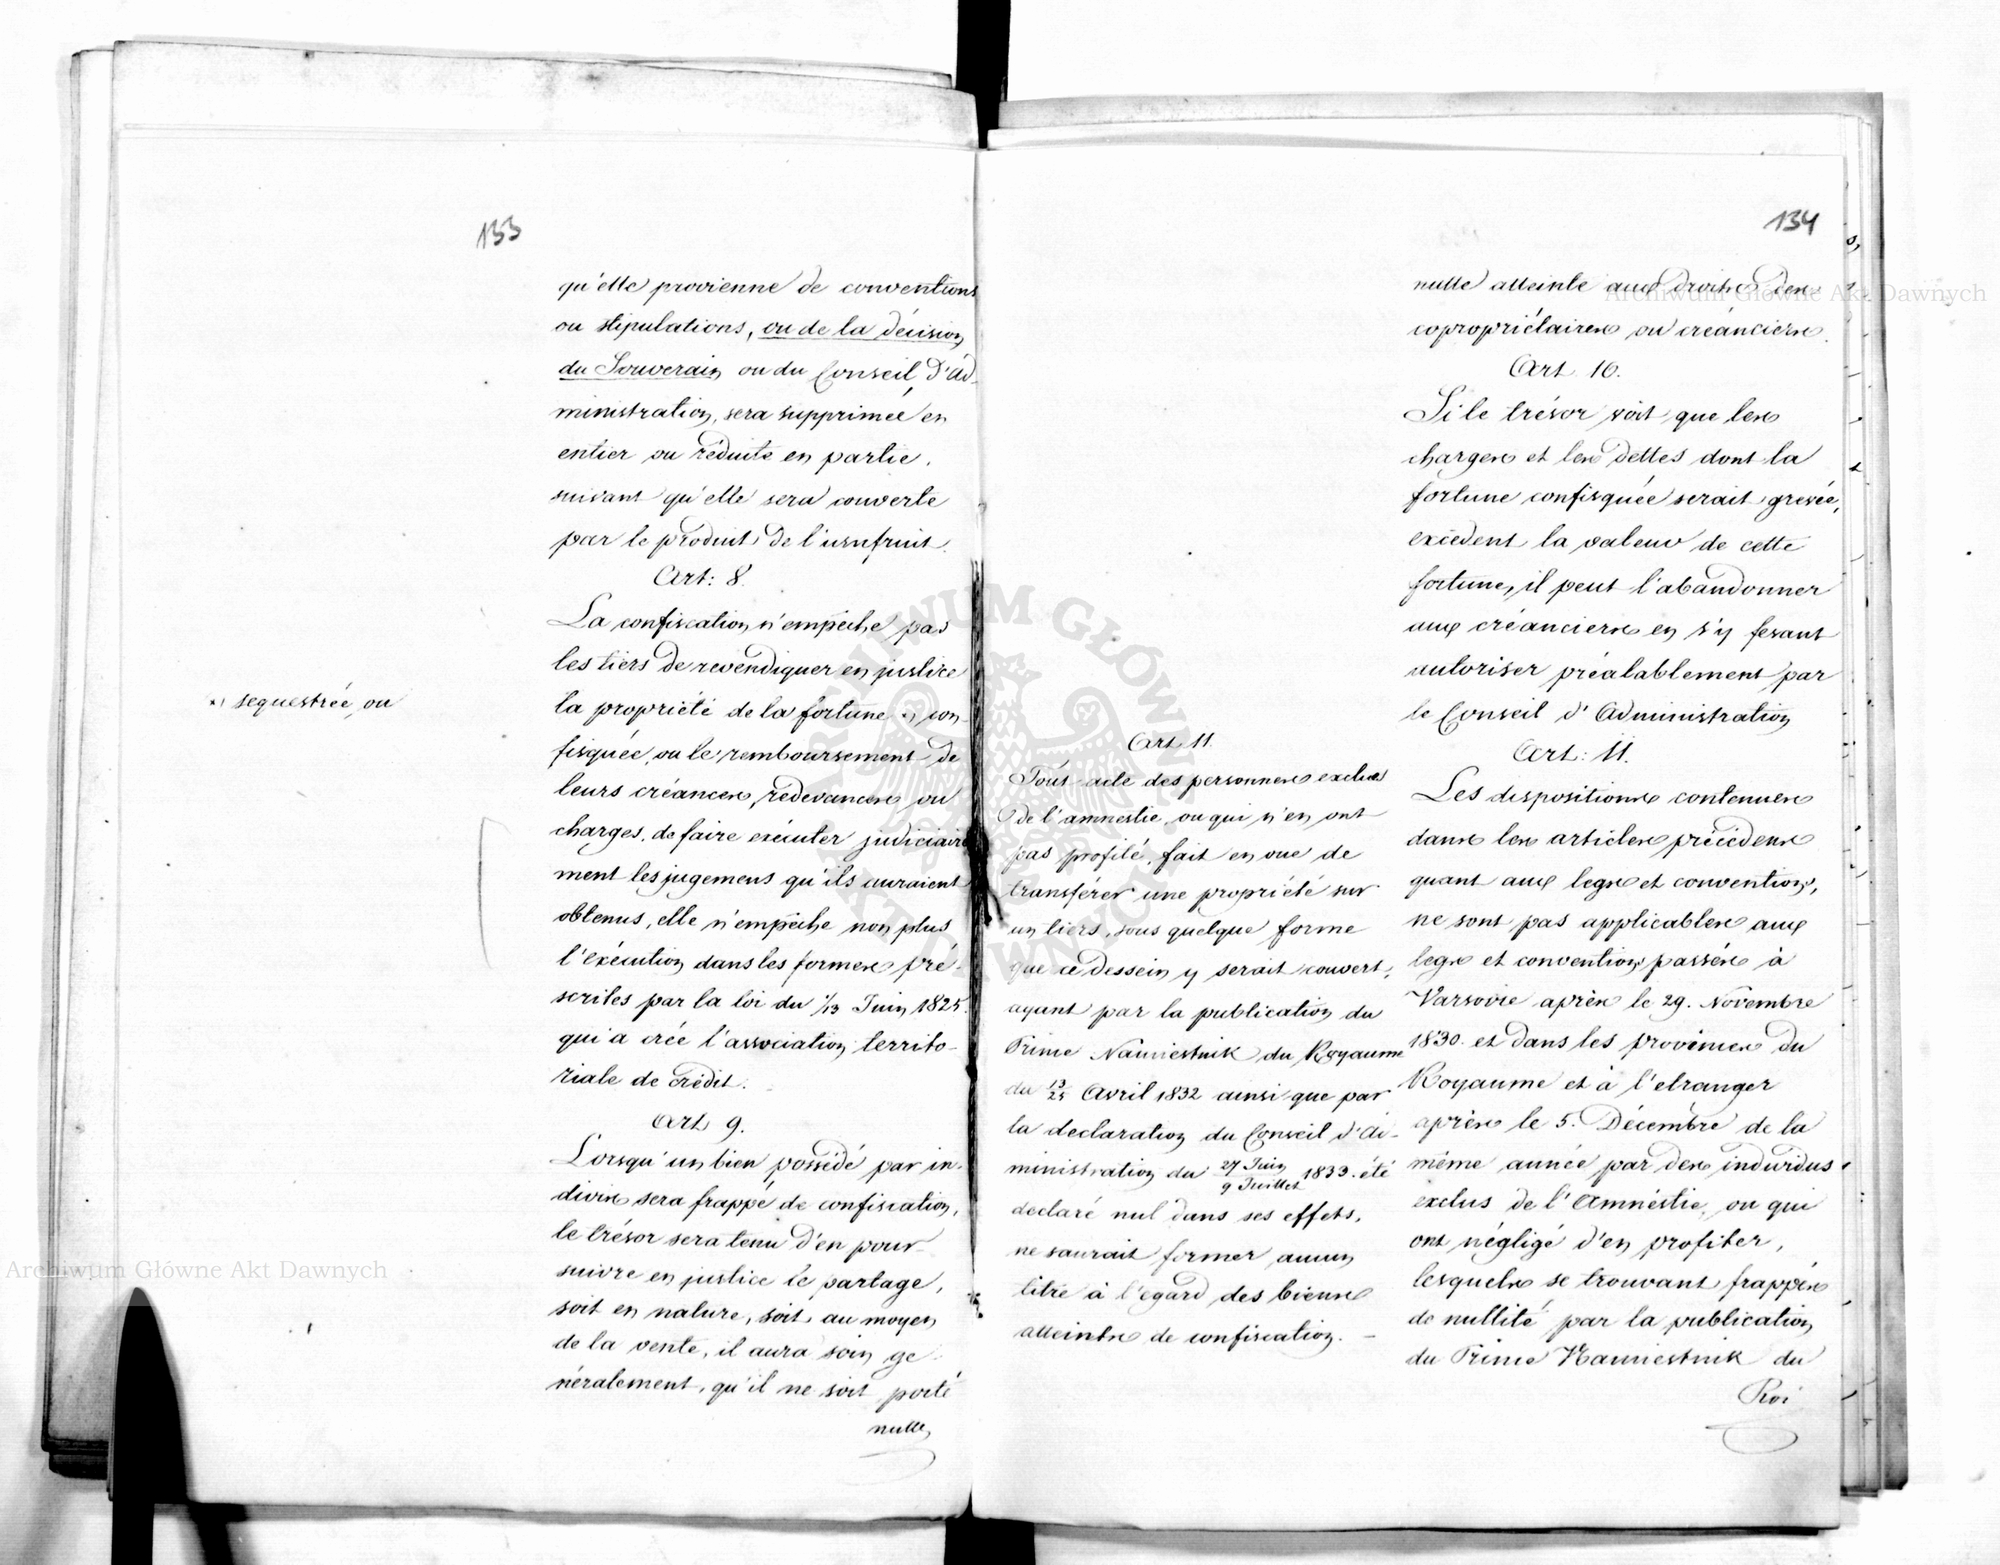 133
qu'elle provienne de conventions
ou stipulations, ou de la décision
du Souverain ou du Conseil d'Ad-
ministration, sera supprimée en
entier ou réduite en partie,
suivant qu'elle sera couverte
par le produit de l'usufruit.
Art: 8.
La confiscation n'empêche pas
les tiers de revendiquer en justice
la propriété de la fortune x) con-
x) sequestrée, ou
fisquée, ou le remboursement de
leurs créances, redevances ou
charges, de faire exécuter judiciaire
ment les jugemens qu'ils auraient
obtenus, elle n'empêche non plus
l'exécution dans les formes pré-
scrites par la loi du 1/13 Juin 1825.
qui a créé l'association territo-
riale de crédit.
Art 9.
Lorsqu'un bien possédé par in-
divis sera frappé de confiscation,
le trésor sera tenu d'en pour-
suivre en justice le partage,
soit en nature, soit au moyen
de la vente, il aura soin gé-
néralement, qu'il ne soit porté
nulle
134
Art 11.
Tout acte des personnes exclues
de l'amnestie, ou qui n'en ont
pas profité, fait en vue de
transférer une propriété sur
un tiers, sous quelque forme
que ce dessein y serait couvert,
ayant par la publication du
Prince Namiestnik du Royaume
du 13/25 Avril 1832 ainsi que par
la declaration du Conseil d'Ad-
ministration du 27 Juin/9 Juillet 1833. été
declaré nul dans ses effets,
ne saurait former aucun
titre à l'egard des biens
atteints de confiscation. —
nulle atteinte aux droits des
copropriétaires ou créanciers.
Art 10.
Si le trésor voit que les
charges et les dettes dont la
fortune confisquée serait grevée,
excèdent la valeur de cette
fortune, il peut l'abandonner
aux créanciers en s'y fesant
autoriser préalablement par
le Conseil d'Administration
Art: 11.
Les dispositions contenues
dans les articles précédens
quant aux legs et conventions,
ne sont pas applicables aux
legs et conventions passés à
Varsovie après le 29. Novembre
1830. et dans les provinces du
Royaume et à l'etranger
après le 5. Décembre de la
même année par des individus
exclus de l'Amnéstie, ou qui
ont négligé d'en profiter,
lesquels se trouvant frappés
de nullité par la publication
du Prince Namiestnik du
Roi
Archiwum Główne Akt Dawnych
Archiwum Główne Akt Dawnych
ARCHIWUM GŁÓWNE AKT DAWNYCH